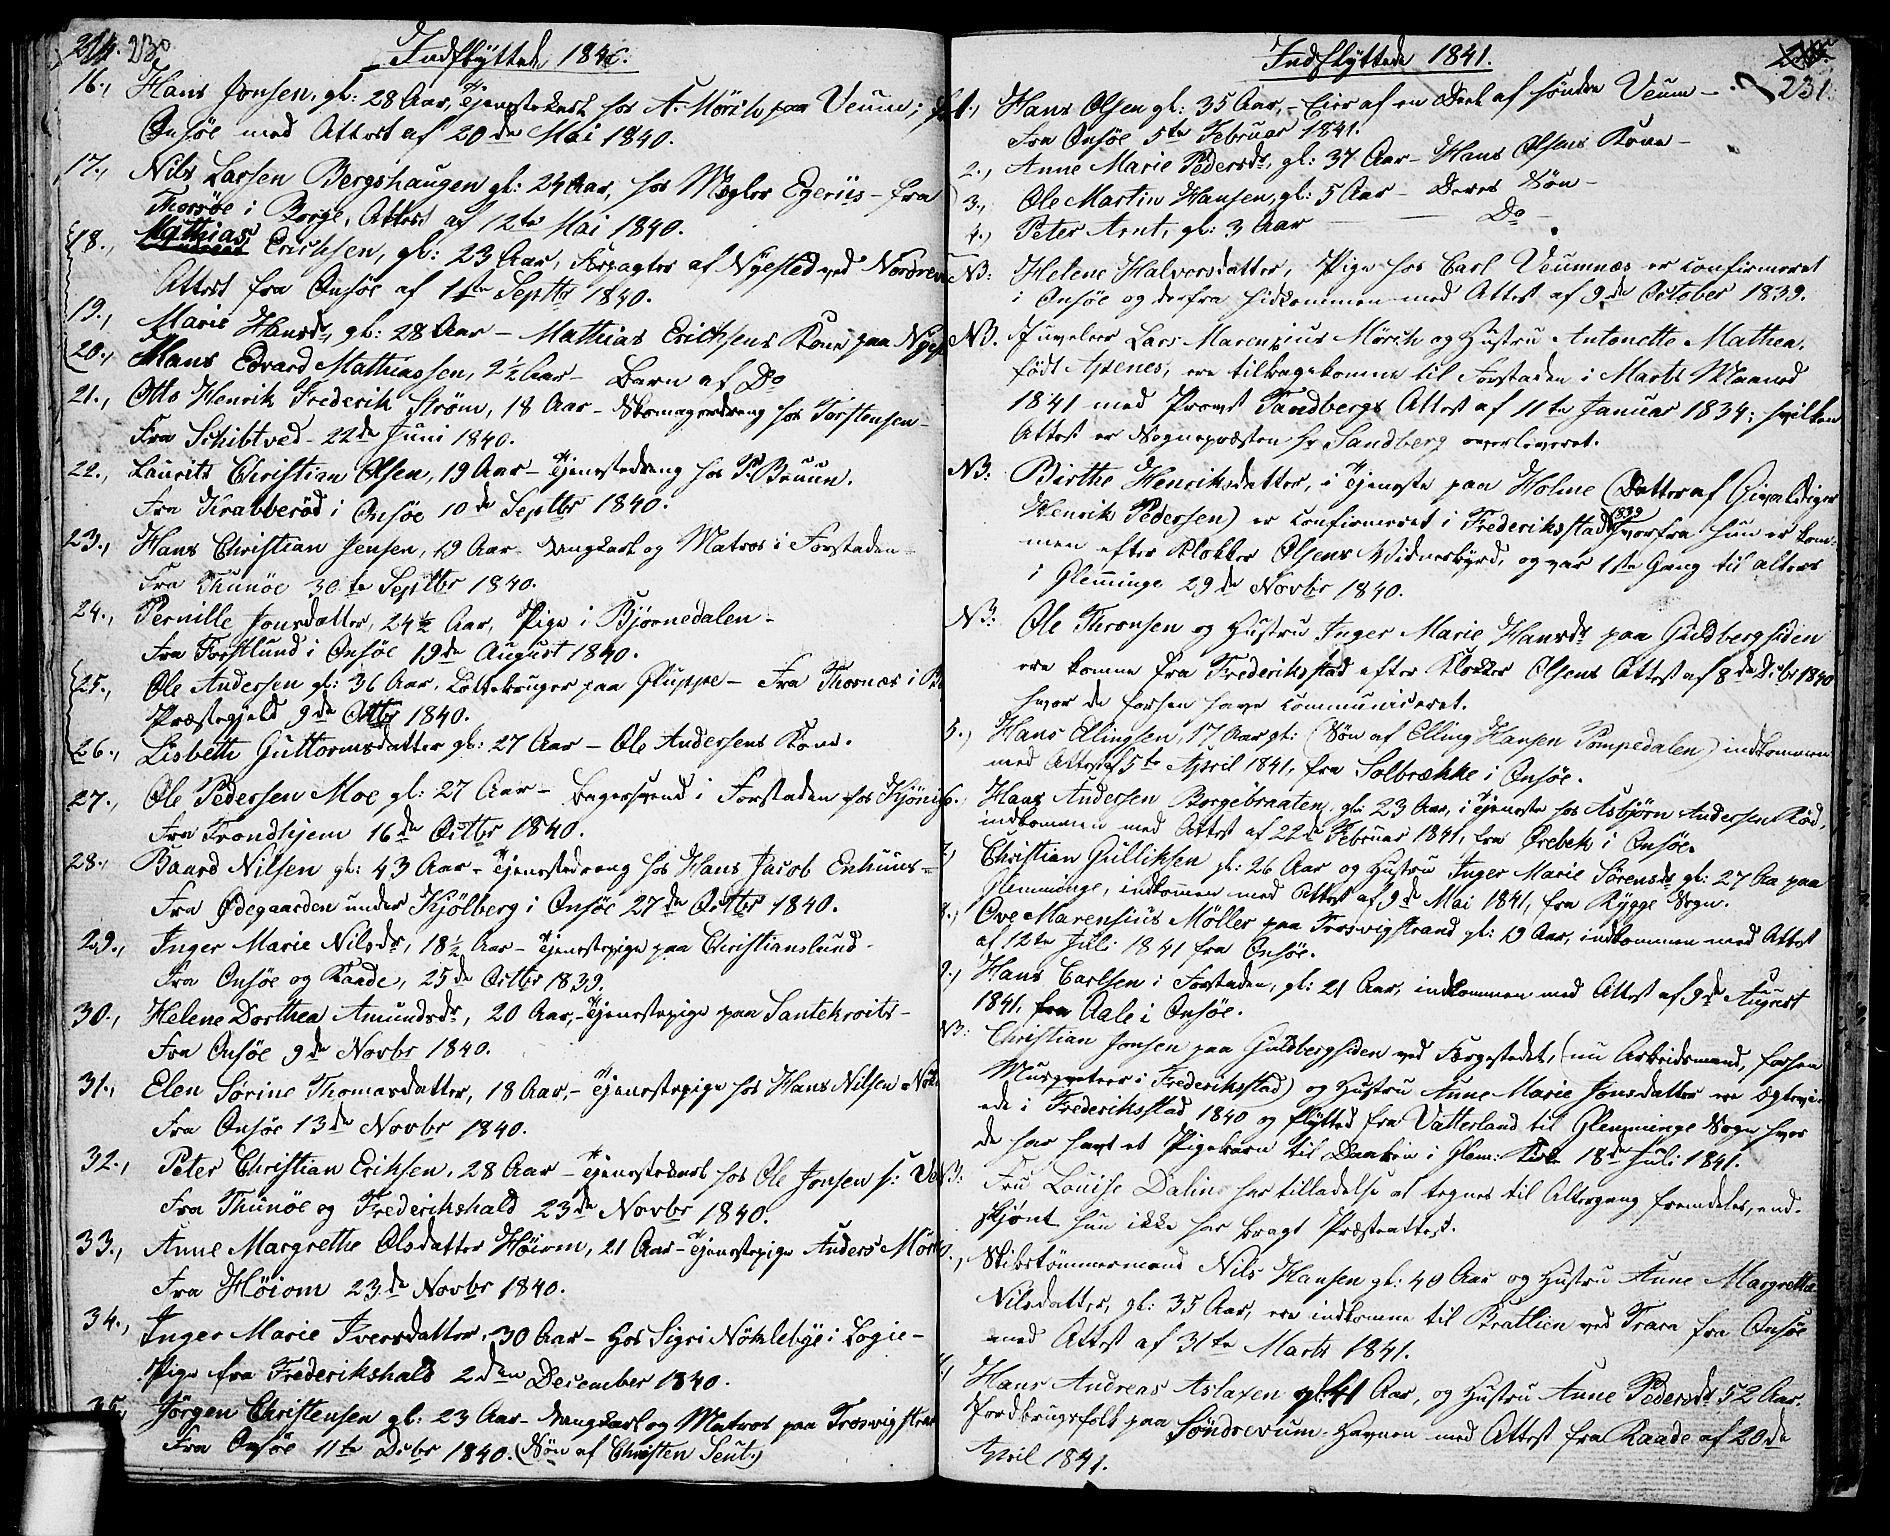 214. 230
Indflyttede 1840.
16., Hans Jonsen, gl: 28 Aar, Tjenestekarl hos A. Mörch paa Veum; fra
Onsöe med Attest af 20de Mai 1840.
17., Nils Larsen Bergshaugen gl: 24 Aar, hos Mægler Egeriis - fra
Thorsöe i Borge, Attest af 12te Mai 1840.
18., Mathias Erichsen, gl: 23 Aar, Forpagter af Nyested ved Nordre
Attest fra Onsöe af 1ste Septbr 1840.
19., Marie Hansdr, gl: 28 Aar - Mathias Erichsens Kone paa
20., Hans Edvard Mathiassen, 2½ Aar - Barn af Do
21., Otto Henrik Frederik Ström, 18 Aar - Skomagerdreng hos Torstensen -
Fra Schibtved - 22de Juni 1840.
22., Laurits Christian Olsen, 19 Aar - Tjenestedreng hos P. Bruun.
Fra Krabberöd i Onsöe 10de Septbr 1840.
23., Hans Christian Jensen, 19 Aar - Ungkarl og Matros i Forstaden -
Fra Thunöe 30te Septbr 1840.
24., Pernille Jonsdatter, 24½ Aar, Pige i Bjørnedalen -
Fra Forstlund i Onsöe 19de August 1840.
25., Ole Andersen gl: 36 Aar, Lottebruger paa Gluppe - Fra Thornæs i
Præstegjeld 9de Octbr 1840.
26., Lisbeth Guttormsdatter gl: 27 Aar - Ole Andersens Kone.
27., Ole Pedersen Moe gl: 27 Aar - Bagersvend i Forstaden hos Kjönig
Fra Trondhjem 16de Octbr 1840.
28., Baard Nilsen gl: 43 Aar - Tjenestedreng hos Hans Jacob Enhuus -
Fra Ødegaarden under Kjölberg i Onsöe 27de Octbr 1840.
29., Inger Marie Nilsdr, 18½ Aar - Tjenestepige paa Christianslund -
Fra Onsöe og Raade, 25de Octbr 1839.
30., Helene Dorthea Amundsdr, 20 Aar, - Tjenestepige paa Santekroits -
Fra Onsöe 9de Novbr 1840.
31., Elen Sörine Thomasdatter, 18 Aar, - Tjenestepige hos Hans Nilsen
Fra Onsöe 13de Novbr 1840.
32., Peter Christian Eriksen, 28 Aar - Tjenestekarl hos Ole Jonsen
Fra Thunöe og Frederikshald 23de Novbr 1840.
33., Anne Margrethe Olsdatter Höiom, 21 Aar - Tjenestepige Anders
Fra Höiom 23de Novbr 1840.
34., Inger Marie Iversdatter, 30 Aar - hos Sigri Nöklebye i Logie -
Pige fra Frederikshald 2den December 1840.
35., Jörgen Christensen gl: 23 Aar - Ungkarl og Matros paa Trosvigstrand
Fra Onsöe 11te Decbr 1840. (Sön af Christen Sent.)
Indflyttede 1841.
231.
1., Hans Olsen gl: 35 Aar, - Eier af en Deel af söndre Veum -
Fra Onsöe 5te Februar 1841.
2., Anne Marie Pedersdr, gl: 37 Aar - Hans Olsens Kone -
3., Ole Martin Hansen, gl: 5 Aar - Deres Sön -
4., Peter Arnt, gl: 3 Aar - Do -
NB: Helene Halvorsdatter, Pige hos Carl Veumnæs er confirmeret
i Onsöe og derfra hidkommen med Attest af 9de October 1839.
NB. Juveleer Lars Marenzius Mörch og Hustru Antonette Mathea,
födt Axenes, ere tilbagekomne til Forstaden i Marts Maaned
1841 med Provst Tandbergs Attest af 11te Januar 1834; hvilken
Attest er Sognepræsten hr Sandberg overleveret.
NB: Birthe Henriksdatter, i Tjeneste paa Holme (Datter af Givaldiger
Henrik Pedersen) er confirmeret i Frederiksstad 1839 hvorfra hun er kom-
men efter Klokker Olsens Vidnesbyrd, og var 1ste Gang til alters
i Glemminge 29de Novbr 1840.
NB: Ole Thronsen og Hustru Inger Marie Hansdr paa Guldbergsiden
ere komne fra Frederiksstad efter Klokker Olsens Attest af 8de Decbr 1840
hvor de forhen have communiceret.
5., Hans Ellingsen, 17 Aar gl: (Sön af Elling Hansen Pompedalen) indkommen
med Attest af 5te April 1841, fra Solbrække i Onsöe.
Hans Andersen Borgebraaten, gl: 23 Aar, i Tjeneste hos Asbjörn Andersen Röd,
indkommen med Attest af 22de Februar 1841, fra Ørebek i Onsöe.
7.) Christian Gulliksen gl: 26 Aar og Hustru Inger Marie Sörensdr gl: 27 Aa paa
Glemminge, indkommen med Attest af 9de Mai 1841, fra Rygge Sogn.
8., Ove Marensius Möller paa Trosvigstrand gl: 19 Aar, indkommen med Attest
af 12te Juli 1841 fra Onsöe.
9., Hans Carlsen i Forstaden, gl: 21 Aar, indkommen med Attest af 9de August
1841, fra Aale i Onsöe.
NB: Christian Jensen paa Guldbergsiden ved Færgestedet, (nu Arbeidsmand, forhen
Musqveteer i Frederiksstad) og Hustru Anne Marie Jonsdatter ere ægtevi-
ede i Frederiksstad 1840 og flytted fra Vatterland til Glemminge Sogn hvor
de har havt et Pigebarn til Daaben i Glem: Kirke 18de Juli 1841.
NB: Fru Louise Dalin har tilladelse at tegnes til Altergang fremdeles, end-
skjönt hun ikke har bragt Præsteattest.
Skibstömmermand Nils Hansen gl: 40 Aar og Hustru Anne Margrethe
Nilsdatter, gl: 35 Aar, ere indkomne til Bratlien ved Trara fra Onsöe
med Attest af 31te Marts 1841.
Hans Andreas Aslaxen gl: 41 Aar, og Hustru Anne Pedersdr 52 Aar.
Jordbrugsfolk paa Söndreveum - Havnen med Attest fra Raade af 20de
April 1841.